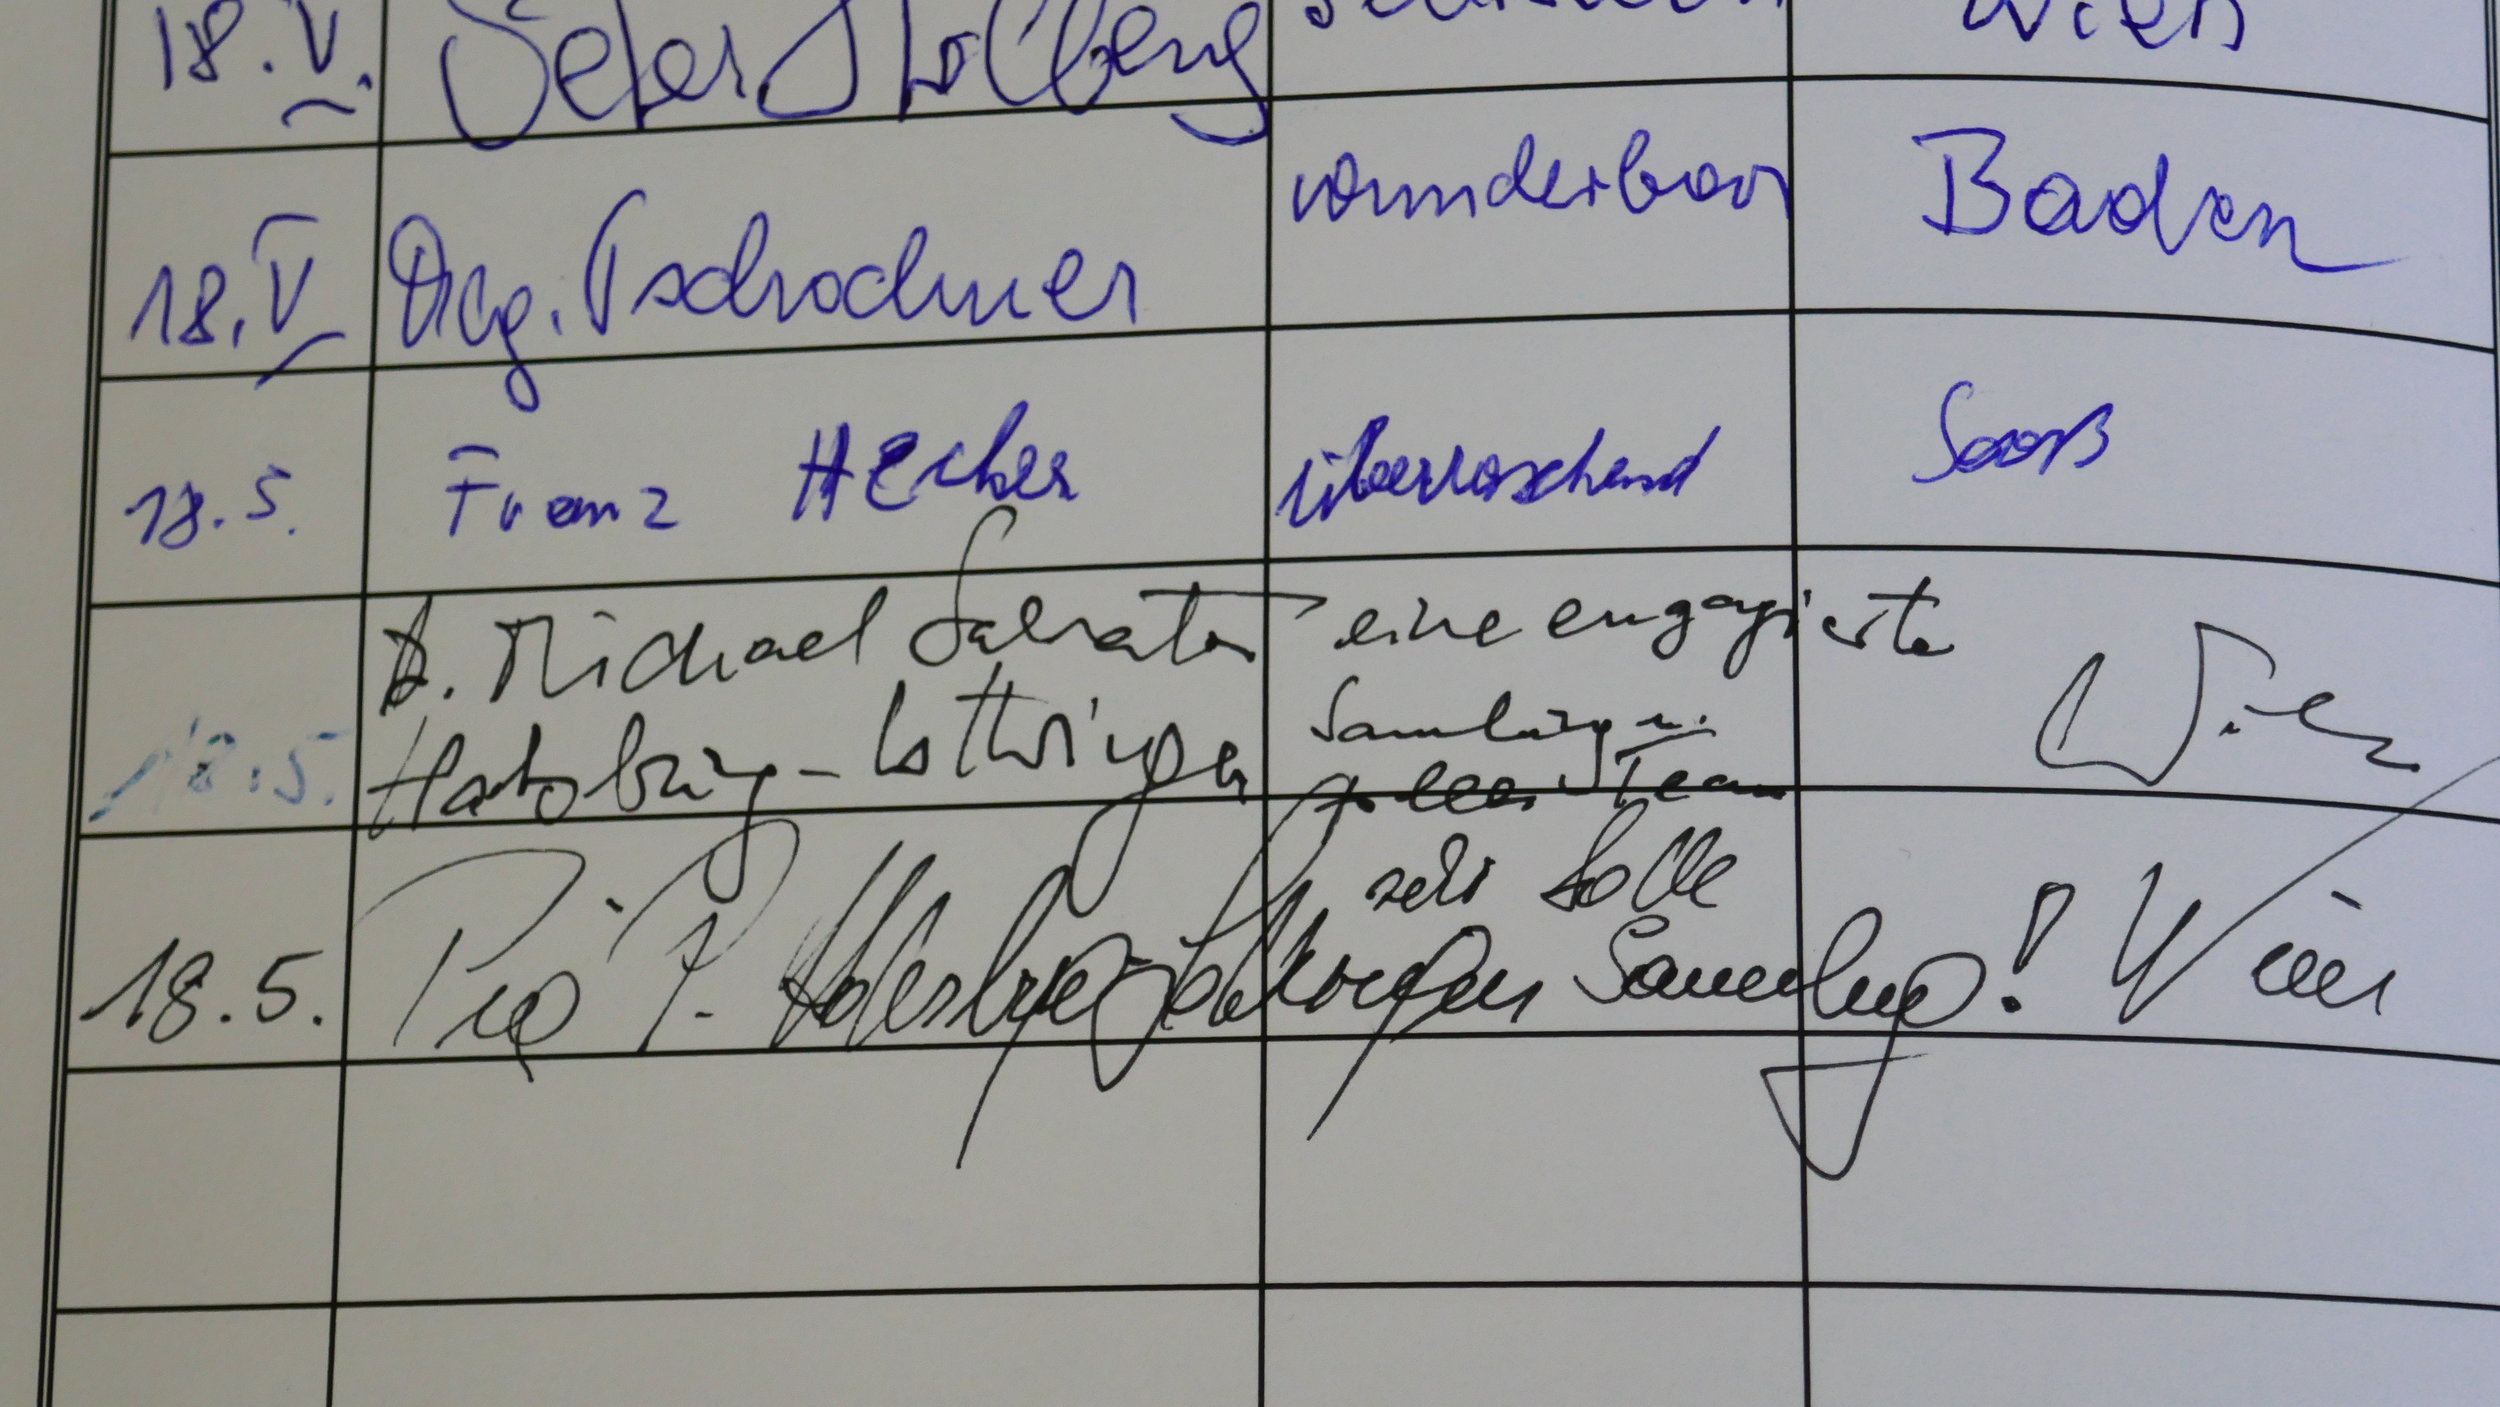 18.V. Peter Stolberg Wien
18.V Mag. Tschochner wunderbar Baden
18.5. Franz Hecher überraschend Sooß
Dr. Michael Salvator eine engagierte
18.5. Habsburg-Lothringen Sammlung u. Wien
tolles Team
sehr tolle
18.5. Habsburg-Lothringen Sammlung! Wien